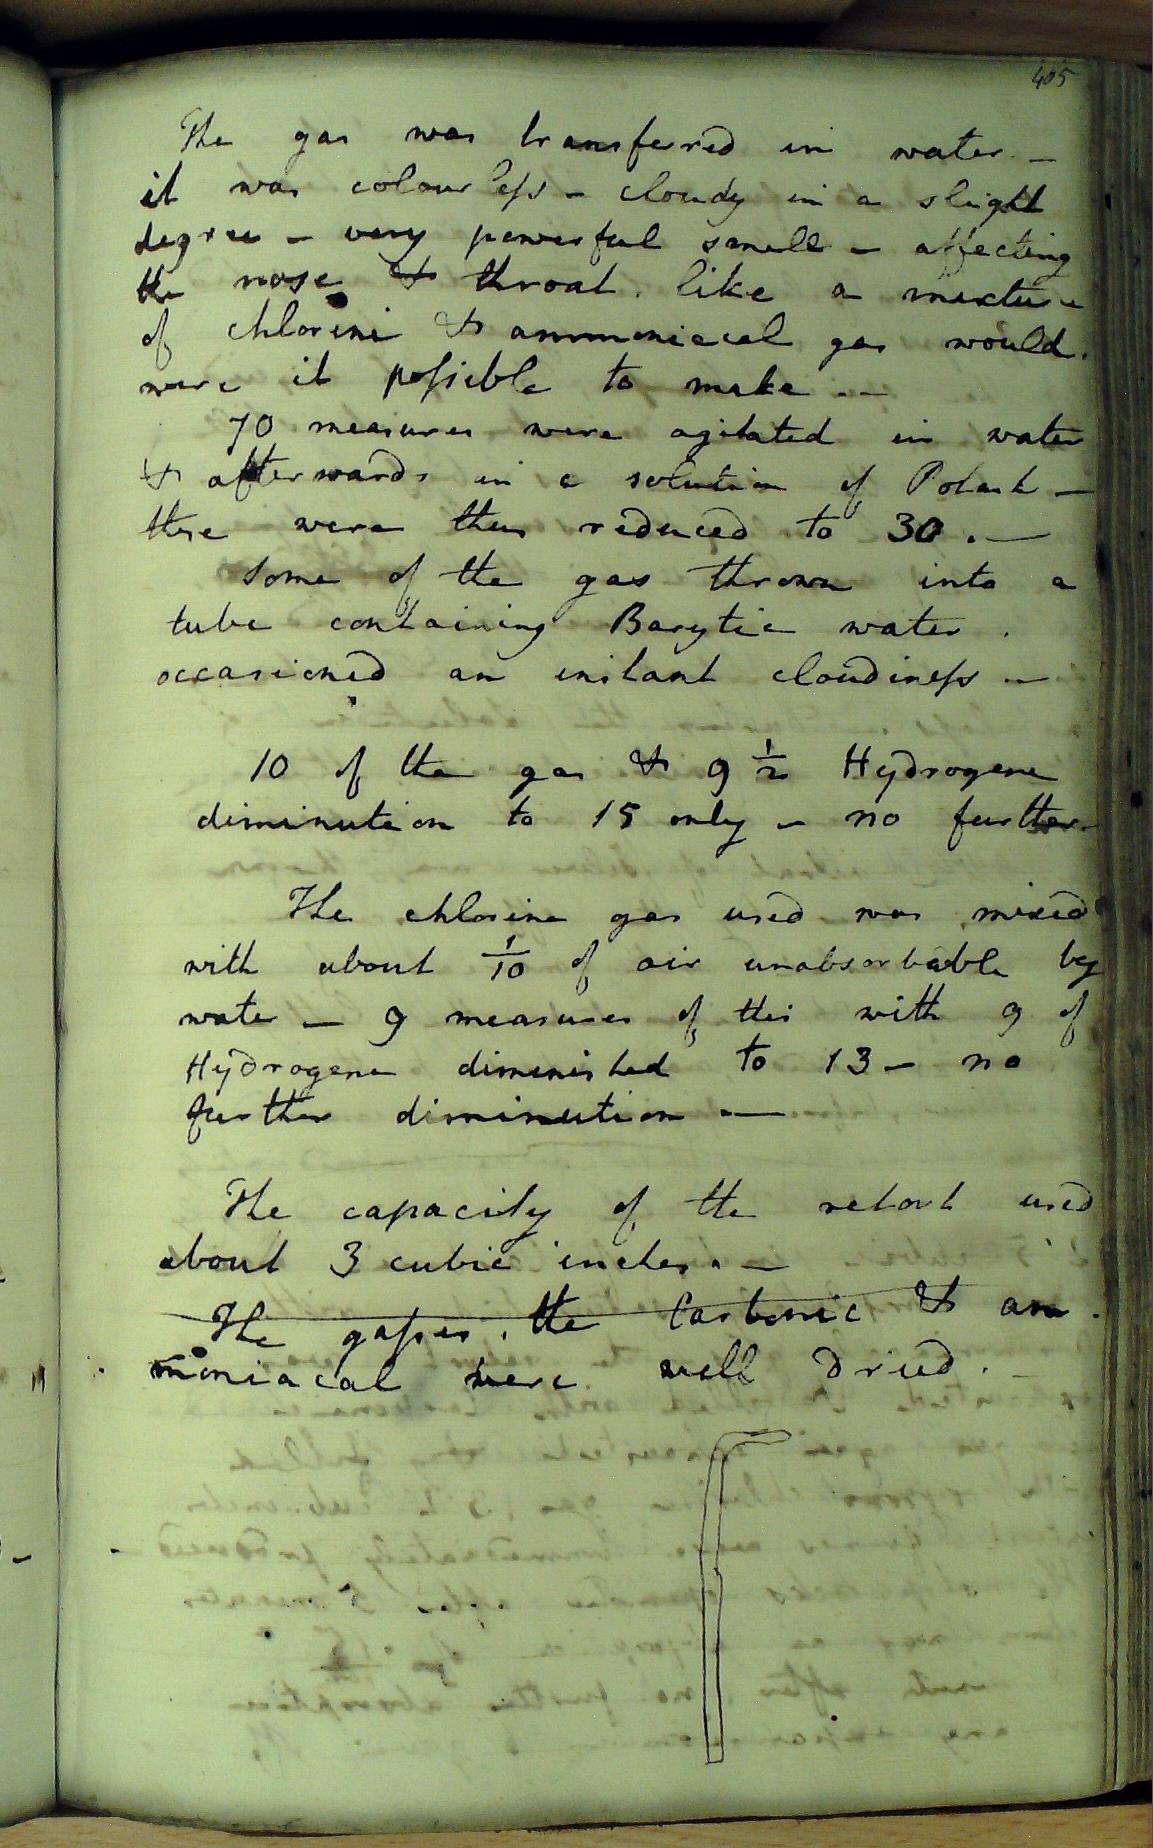 405
The gas was transferred in water. –
it was colourless – cloudy in a slight
degree – very powerful smell – affecting
the nose & throat. like a mixture
of chlorine & ammoniacal gas would.
were it possible to make. –
70 measures were agitated in water
& afterwards in a solution of Potash –
these were thus reduced to 30. –
Some of the gas thrown into a
tube containing Barytic water.
occasioned an instant cloudiness. –
10 of the gas & 9 1/2 Hydrogene
diminution to 15 only – no further.
The chlorine gas used was mixed
with about 1/10 of air unabsorbable by
water – 9 measures of this with 9 of
Hydrogene diminished to 13 – no
further diminution. –
The capacity of the retort used
about 3 cubic inches. –
The gasses, the Carbonic & am
moniacal were well dried. –